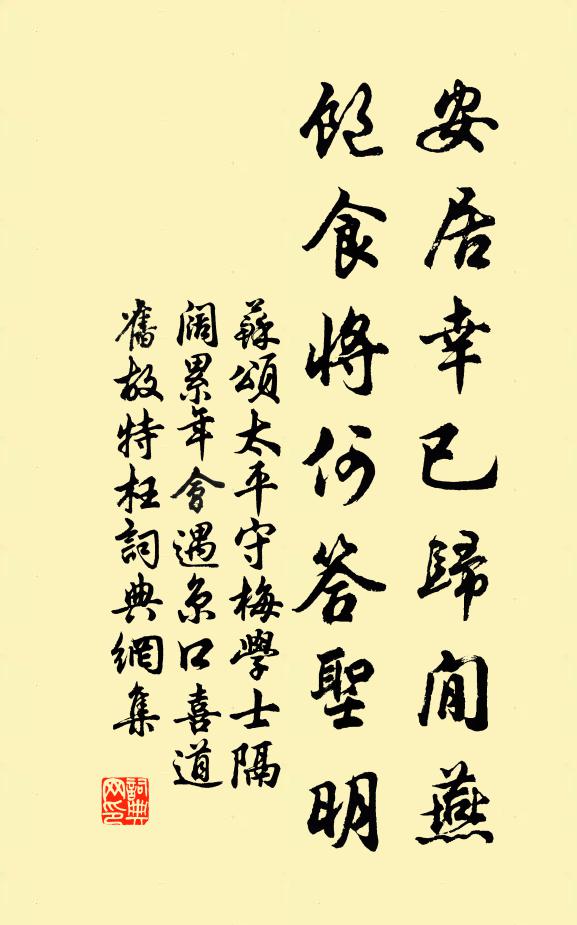 安居幸已歸閒燕
飽食將何答聖明
蘇頌太平守梅學士隔
闊累年會遇京口喜道
舊故特枉詞典網集
詞典網印